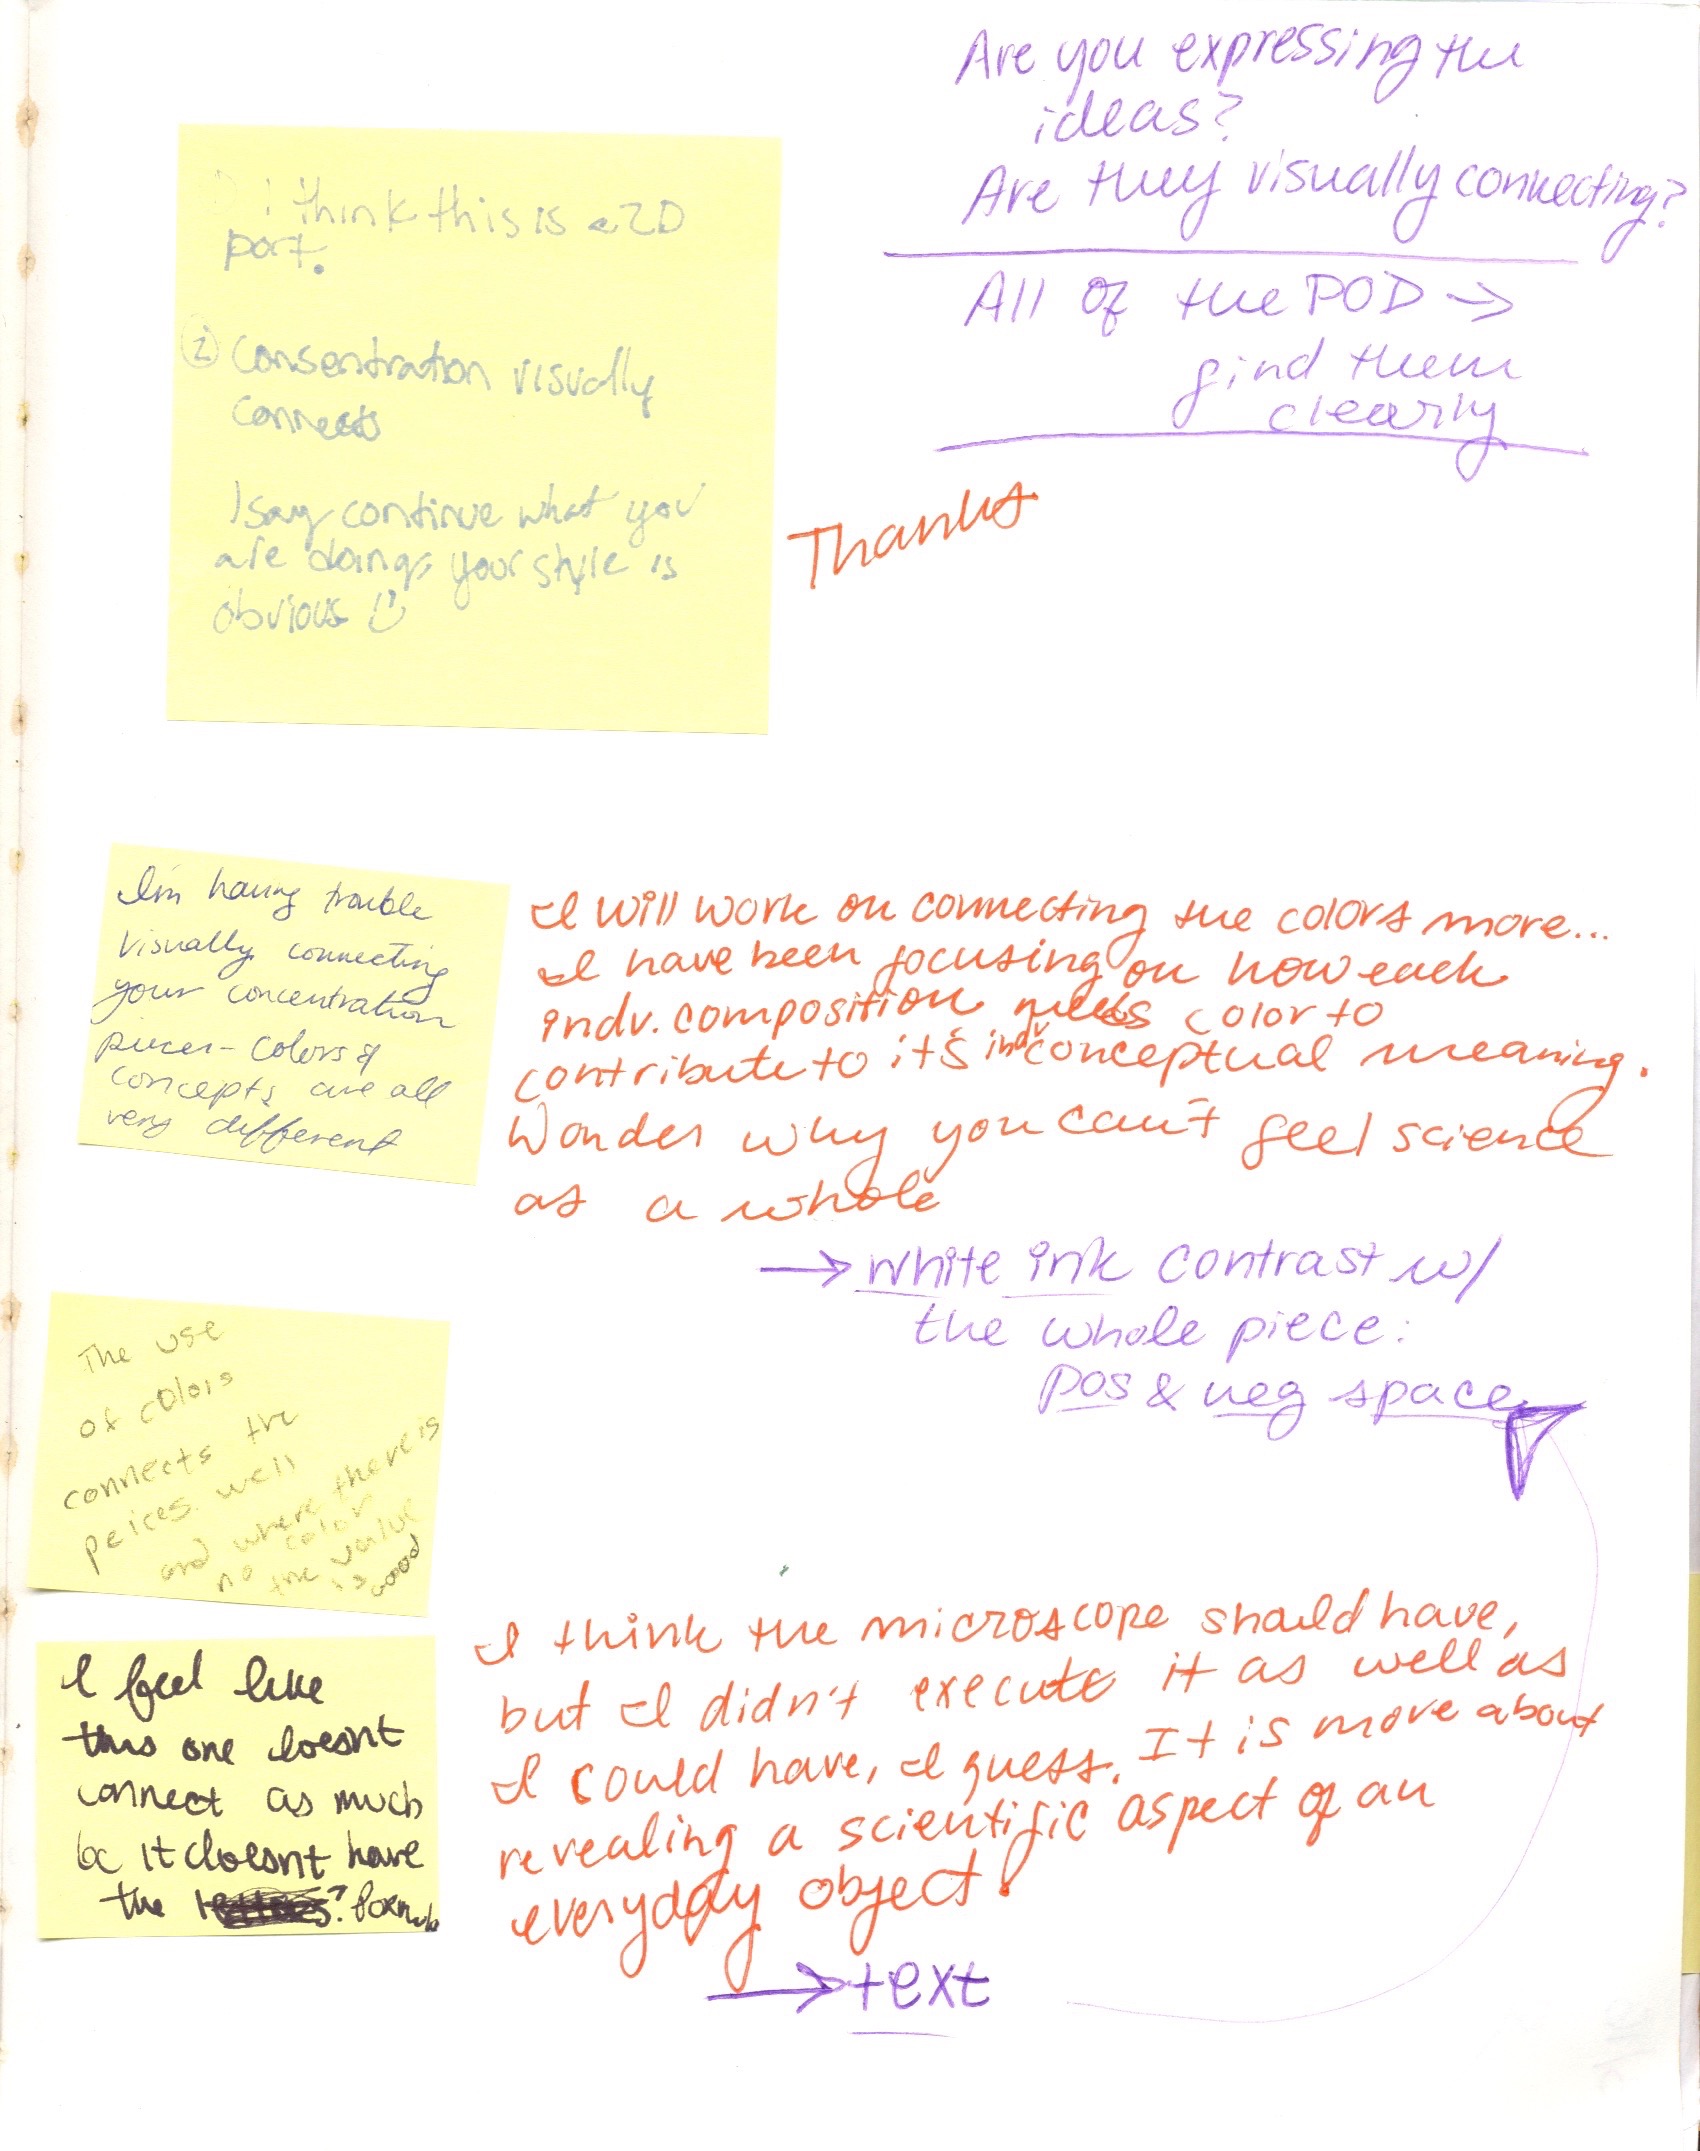 Are you expressing the
ideas?
Are they visually connecting?
All of the POD →
find them
clearly
I think this is a 2D
port.
② Consentration visually
connects
I say continue what you
are doing, your style is
obvious
Thanks
I'm having trouble
visually connecting
your concentration
pieces - colors &
concepts are all
very different
I will work on connecting the colors more...
I have been focusing on how each
indv. composition needs color to
contribute to it's indv conceptual meaning.
Wonder why you can't feel science
as a whole
→ white ink contrast w/
the whole piece:
pos & neg space
The use
of colors
connects the
peices well
and where there is
no color
the value
is good
I feel like
this one doesnt
connect as much
bc it doesnt have
the
I think the microscope should have,
but I didn't execute it as well as
I could have, I guess. It is more about
revealing a scientific aspect of an
everyday object.
→ text